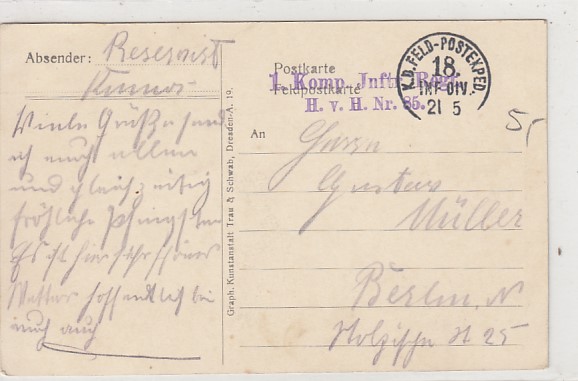 Absender: Reservist
Viele Grüße send
ich euch allen
und gleichzeitig
fröhliche Pfingsten
Es ist hier sehr schönes
Wetter hoffendlich bei
euch auch
Graph. Kunstanstalt Trau & Schwab, Dresden-A. 19.
Postkarte
Feldpostkarte
1. Komp. Inftr. Regt.
H. v. H. Nr. 85.
K.D. FELD-POSTEXPED.
18.
INF-DIV.
21 5
5,-
An
Herrn
Gustav
Müller
Berlin. N
25